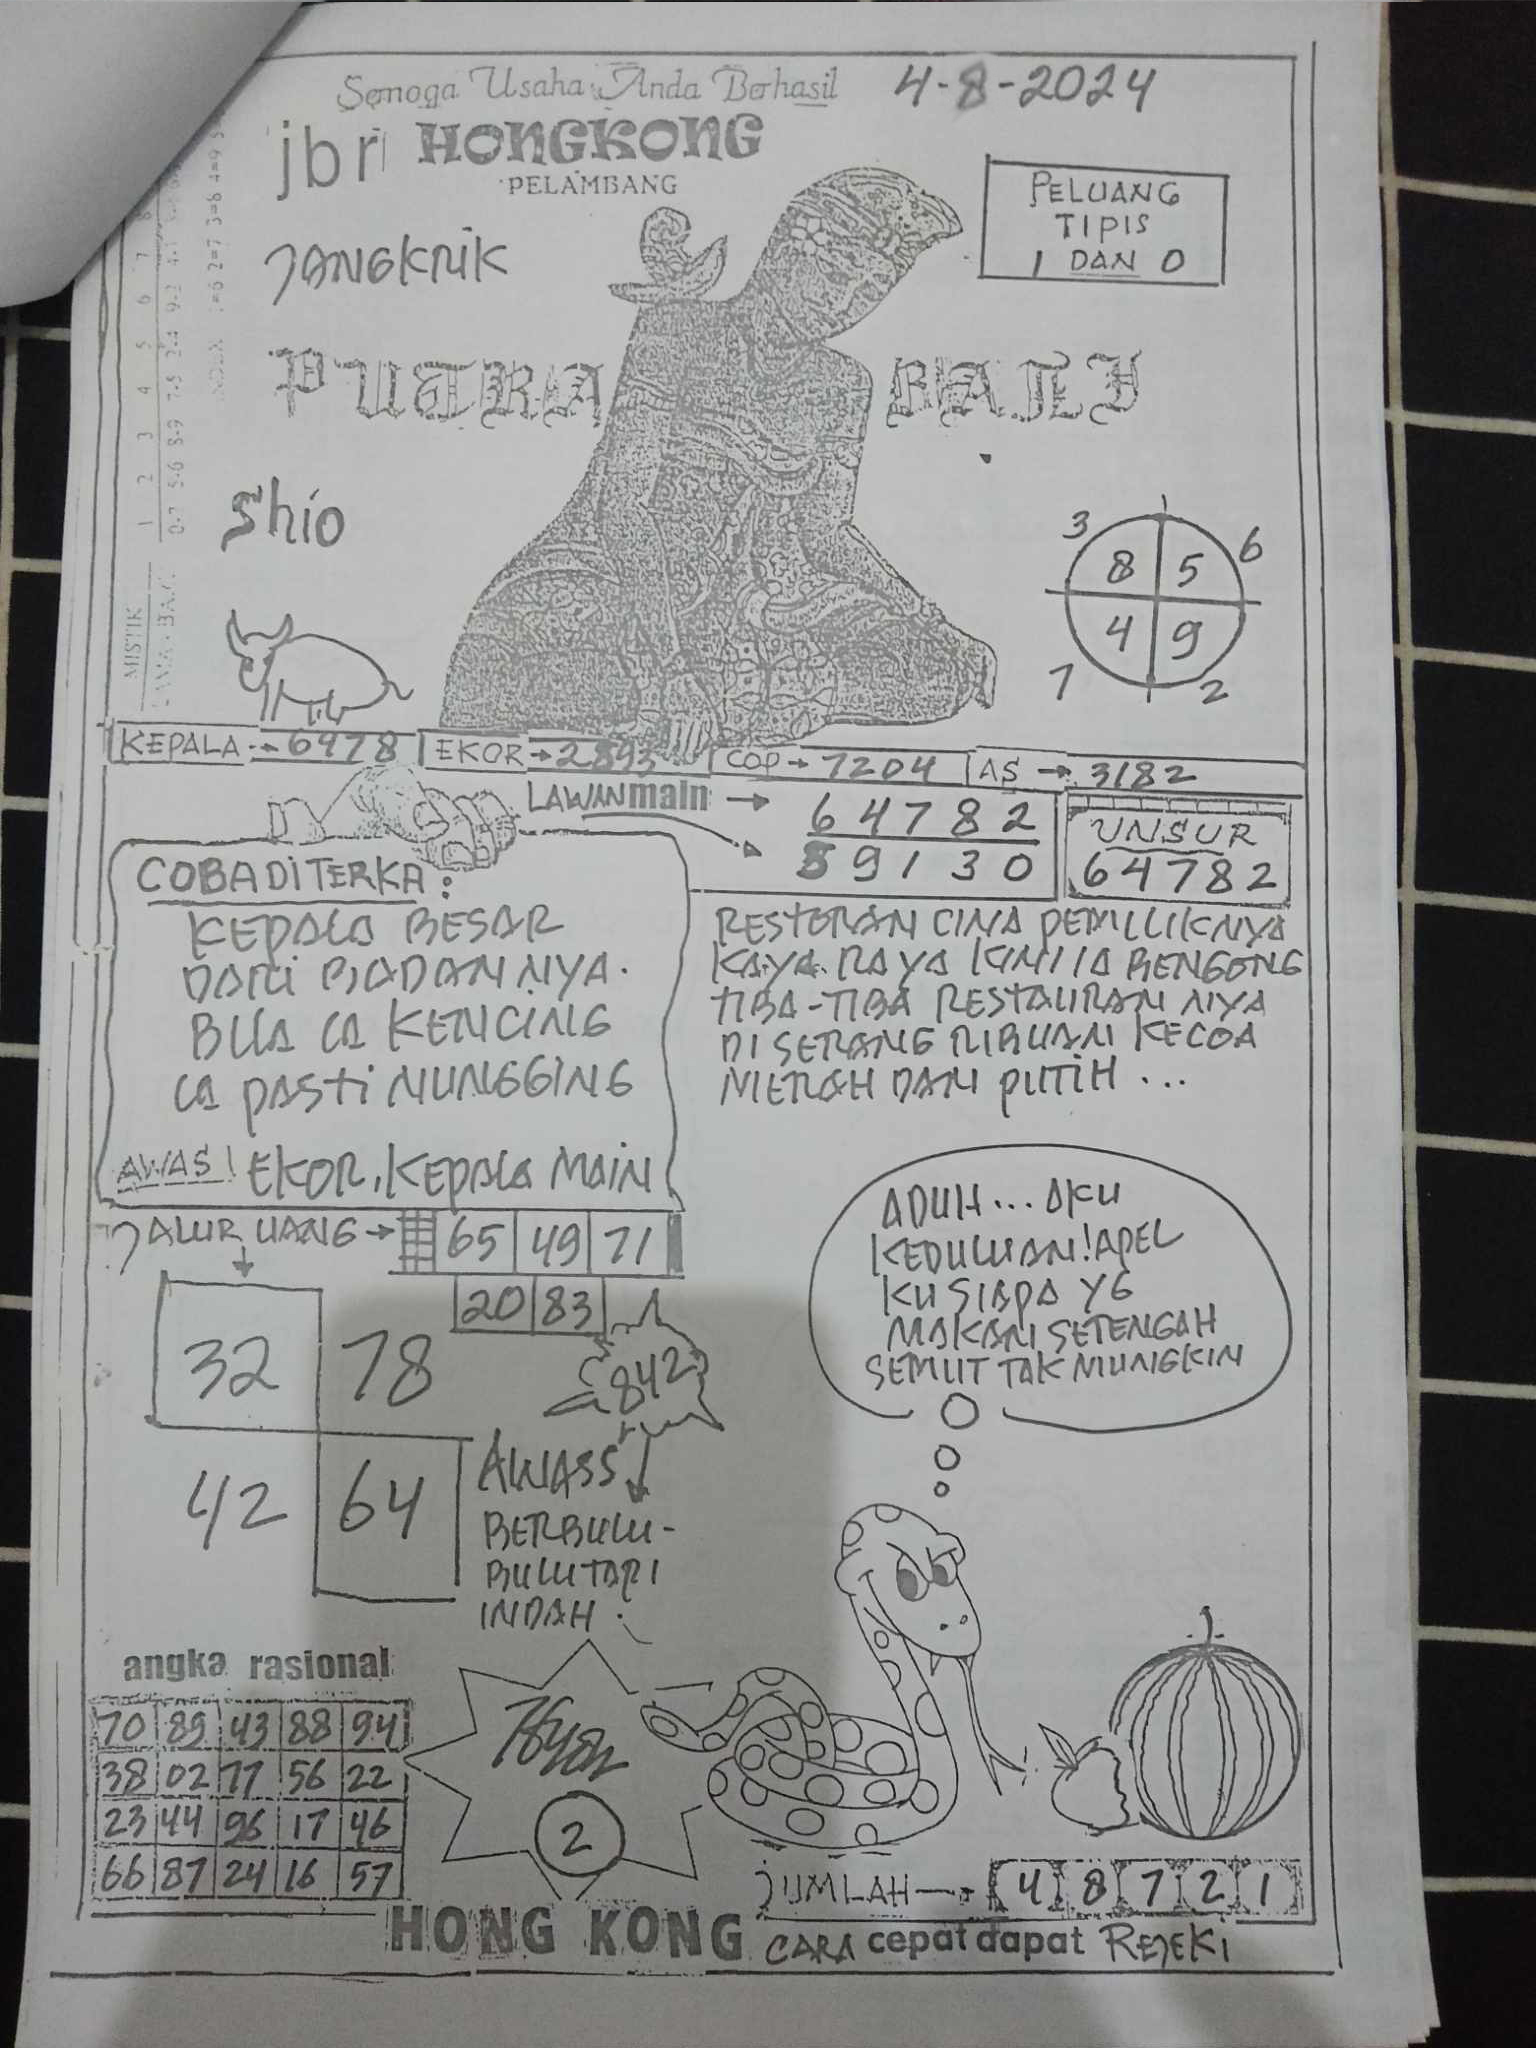 Semoga Usaha Anda Berhasil 4-8-2024
jbr HONGKONG
PELAMBANG
JANGKRIK
PELUANG
TIPIS
1 DAN 0
PUTRA BALI
Shio
3 6
8 5
4 9
7 2
MISTIK
1 2 3 4 5 6 7 8
0-7 5-6 8-9 7-5 3-4 9-2 4-1
INDEX 1=6 2=7 3=8 4=9
KEPALA → 6478 EKOR → 2893 COP → 7204 AS → 3182
LAWAN main → 64782
89130
UNSUR
64782
COBA DITERKA:
KEPALA BESAR
DARI BADANNYA.
BILA IA KENCING
IA PASTI NUNGGING
AWAS! EKOR, KEPALA MAIN
RESTORAN CINA PEMILLIKNYA
KAYA RAYA KINI IA BENGONG
TIBA-TIBA RESTAURAN NYA
DI SERANG RIBUAN KECOA
MERAH DAN PUTIH ...
JALUR UANG → 65 49 71
20 83
32 78
42 64
842
AWASS
BERBULU-
BULU TAPI
INDAH.
ADUH... AKU
KEDULUAN! APEL
KU SIAPA YG
MAKAN SETENGAH
SEMUT TAK MUNGKIN
angka rasional
70 89 43 88 94
38 02 77 56 22
23 44 96 17 46
66 87 24 16 57
2
JUMLAH → 4 8 7 2 1
HONG KONG CARA cepat dapat REJEKI